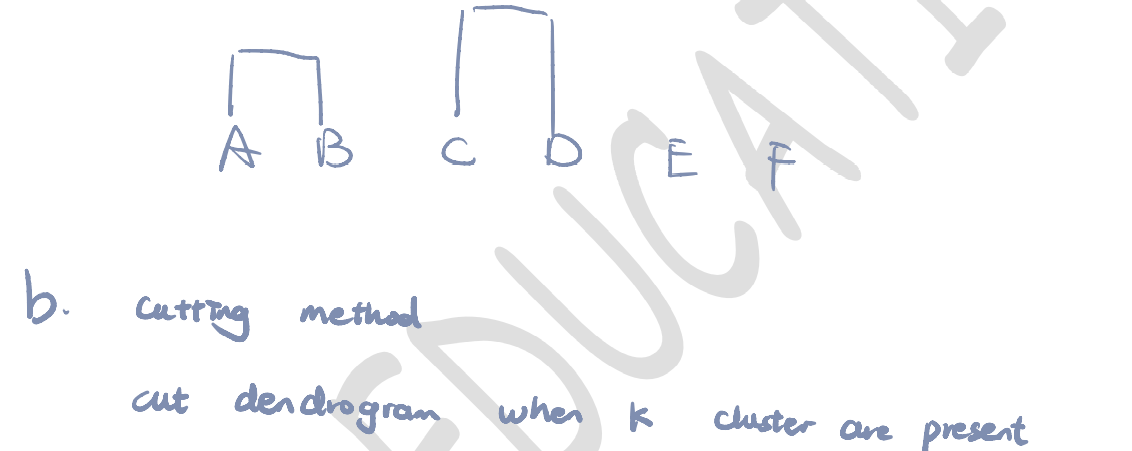 A B C D E F
b. cutting method
cut dendrogram when k cluster are present
EDUCATI